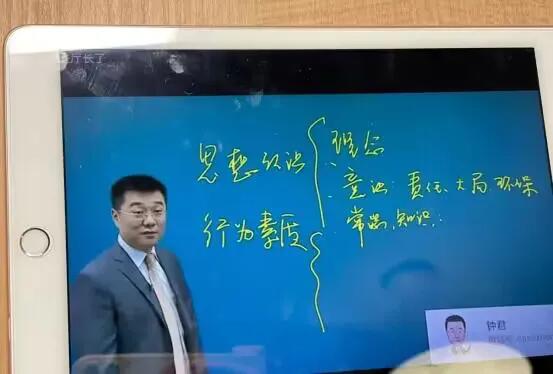 厅长了
思想认识
理念
意识: 责任、大局 环保
行为素质
常識、知识:
钟君